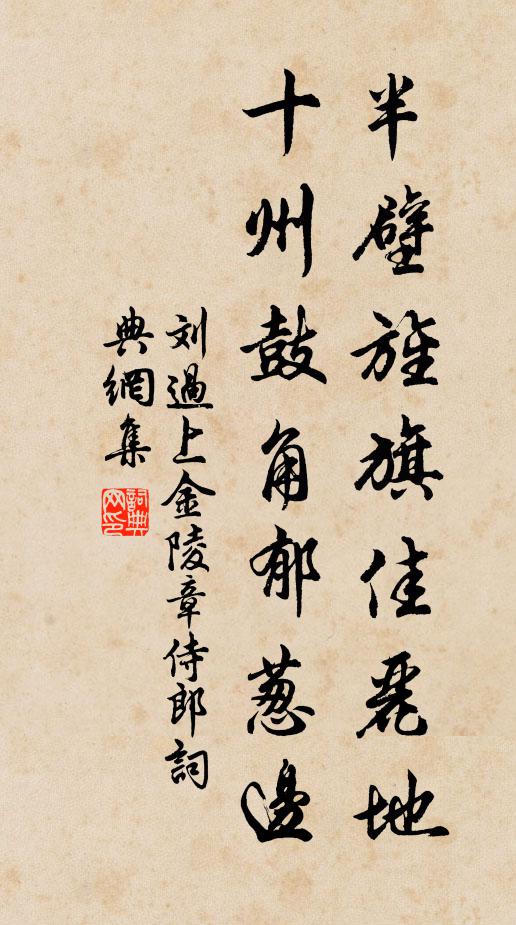 半壁旌旗佳麗地
十州鼓角郁葱邊
刘過上金陵章侍郎詞
典網集
詞典網印